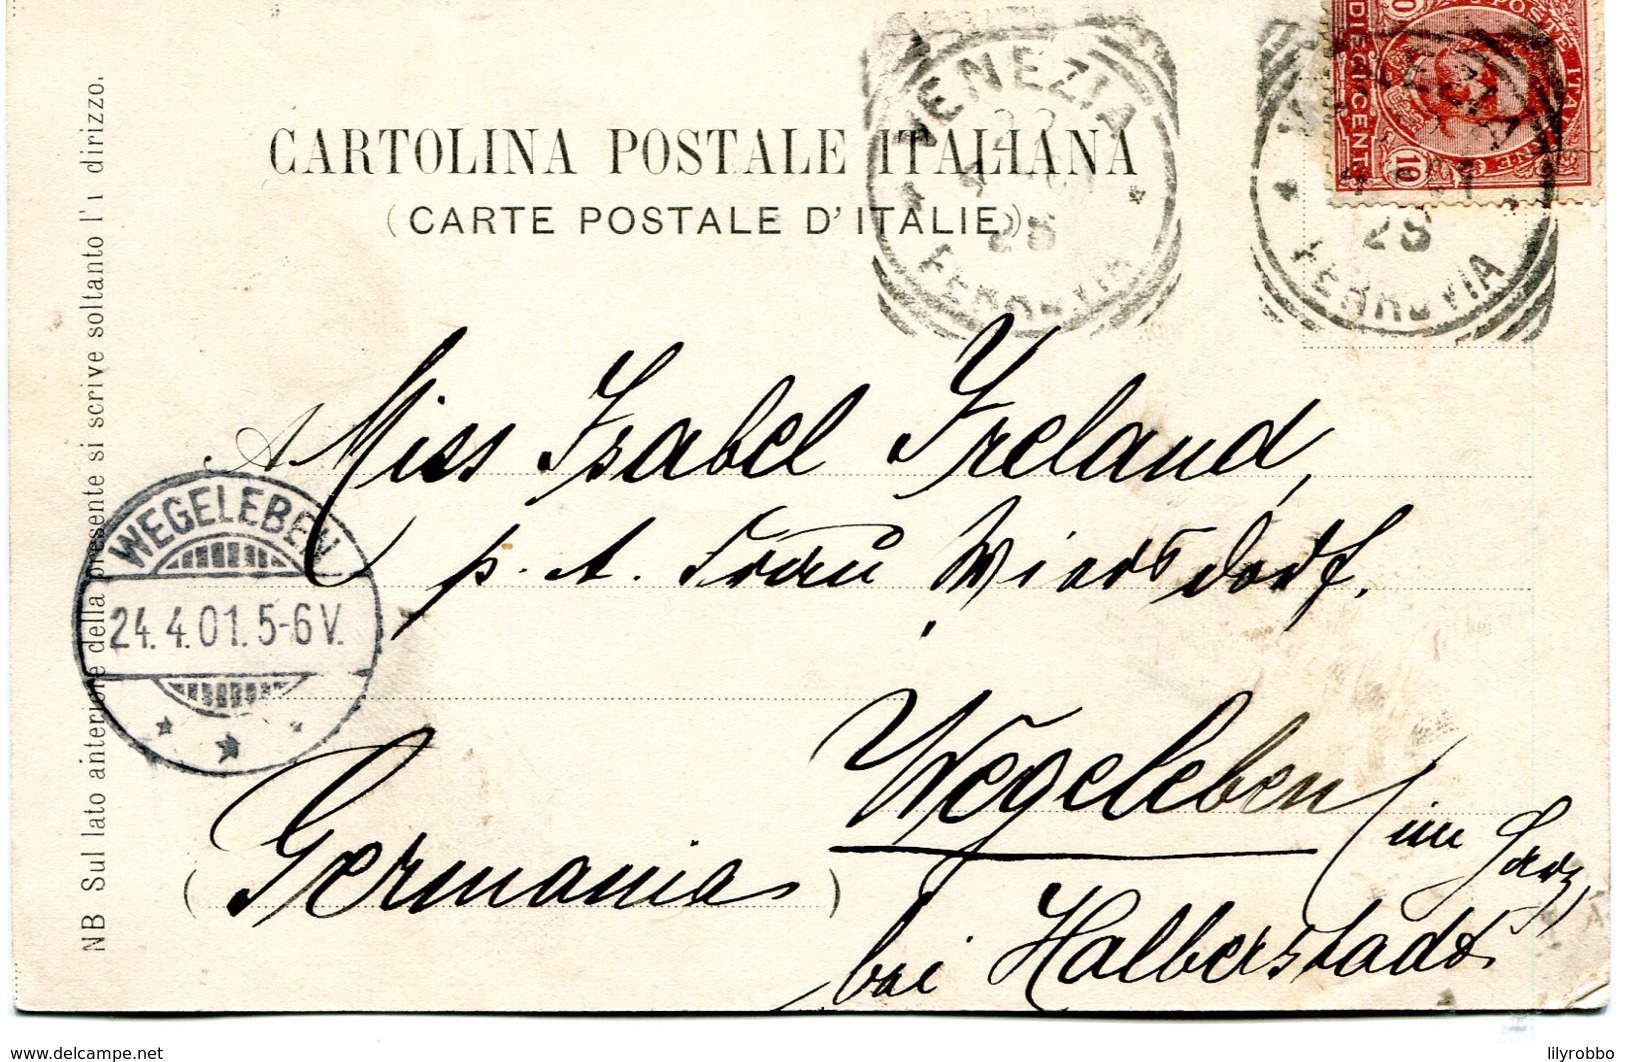 CARTOLINA POSTALE ITALIANA
(CARTE POSTALE D'ITALIE)
VENEZIA
FERROVIA
28
FERROVIA
28
POSTE ITA
DIECI CENT
10
NB Sul lato anteriore della presente si scrive soltanto l'i dirizzo.
Miss Isabel Ireland,
p. A. Frau Wiersdorf.
WEGELEBEN
24.4.01.5-6V.
Wegeleben
(im Harz)
(Germania)
bei Halberstadt
delcampe.net
lilyrobbo